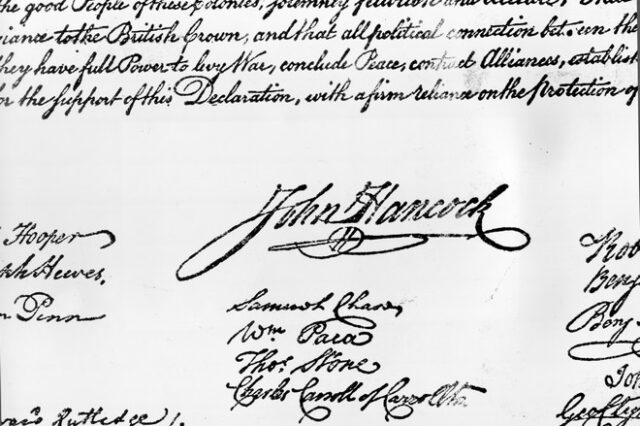 the good People of these Colonies, solemnly publish and declare, That
iance to the British Crown, and that all political connection between the
they have full Power to levy War, conclude Peace, contract Alliances, establish
for the support of this Declaration, with a firm reliance on the Protection of
John Hancock
Hooper
Hewes,
Penn
Samuel Chase
Wm. Paca
Thos. Stone
Charles Carroll of Carrollton
Rutledge
Benj
Geo Cly